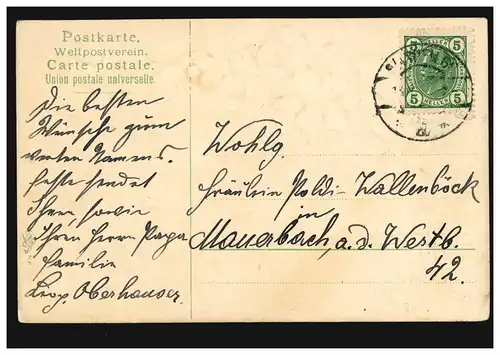 Postkarte.
Weltpostverein.
Carte postale.
Union postale universelle.
5 HELLER 5
5 HELLER 5
Die besten
Wünsche zum
werten Namens-
feste sendet
Ihnen sowie
Ihren Herrn Papa
Familie
Leop. Oberhauser
Wohlg.
Fräulein Poldi Wallenböck
in
Mauerbach, a. d. Westb.
42.